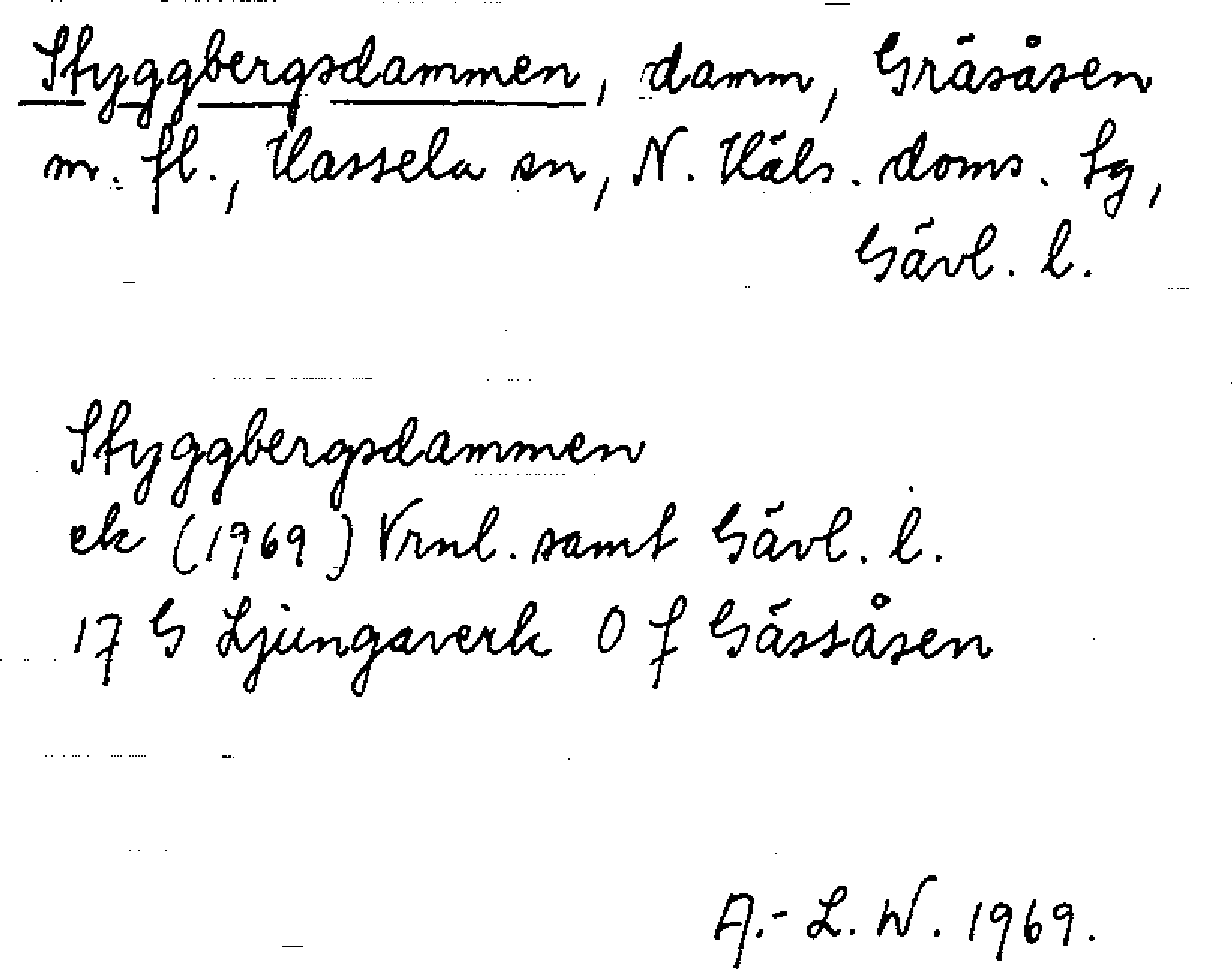 Styggbergsdammen, damm, Gräsåsen
m. fl., Hassela sn, N. Häls. doms. tg,
Gävl. l.
Styggbergsdammen
ek (1969) Vrnl. samt Gävl. l.
17 G Ljungaverk 0 f Gåssåsen
A.-L. W. 1969.